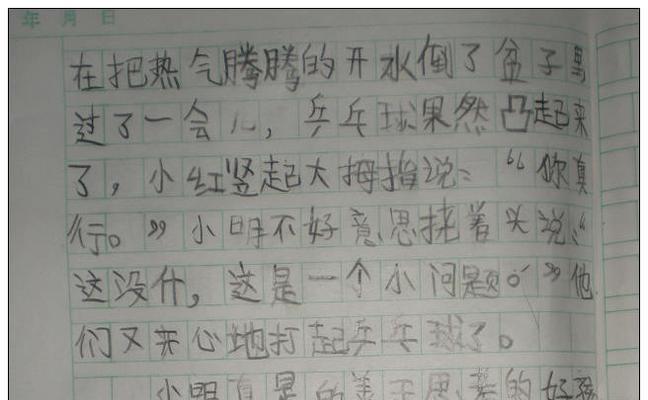 年 月 日
在把热气腾腾的开水倒了盆子里
过了一会儿，乒乓球果然凸起来
了，小红竖起大拇指说：“你真
行。”小明不好意思挠着头说：“
这没什，这是一个小问题。”他
们又开心地打起乒乓球了。
小明真是的善于思考的好孩